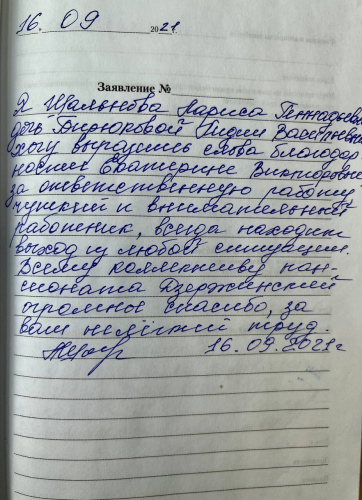 16. 09 2021.
Заявление №
Я Шальнова Лариса Геннадьевна
дочь Бирюковой Лидии Васильевны
хочу выразить слова благодар
ности Екатерине Викторовне
за ответственную работу
чуткий и внимательный
работник, всегда находит
выход из любой ситуации.
Всему коллективу пан-
сионата Дзержинский
огромное спасибо, за
ваш нелёгкий труд.
16.09.2021г